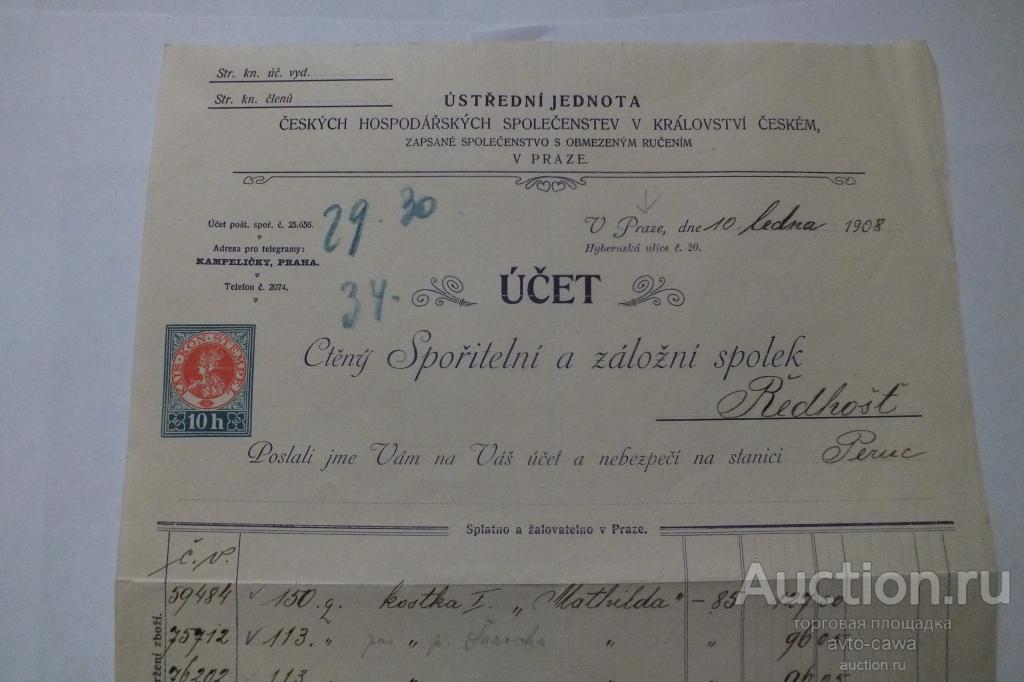 Str. kn. úč. vyd.
Str. kn. členů
ÚSTŘEDNÍ JEDNOTA
ČESKÝCH HOSPODÁŘSKÝCH SPOLEČENSTEV V KRÁLOVSTVÍ ČESKÉM,
ZAPSANÉ SPOLEČENSTVO S OBMEZENÝM RUČENÍM
V PRAZE.
Účet pošt. spoř. č. 25.656.
Adresa pro telegramy:
KAMPELIČKY, PRAHA.
Telefon č. 2074.
29. 30
34.
V Praze, dne 10. ledna 1908
Hybernská ulice č. 20.
ÚČET
KAIS·KÖN·STEMPEL
10 h
Ctěný Spořitelní a záložní spolek
Ředhošť
Poslali jme Vám na Váš účet a nebezpečí na stanici Peruc
Splatno a žalovatelno v Praze.
č. v.
59484 150. q. kostka I. „Mathilda" – 85 127 50
75712 113. " " p. " " 96 05
76202 113 96 05
ržení zboží.
Auction.ru
торговая площадка
avto-cawa
auction.ru